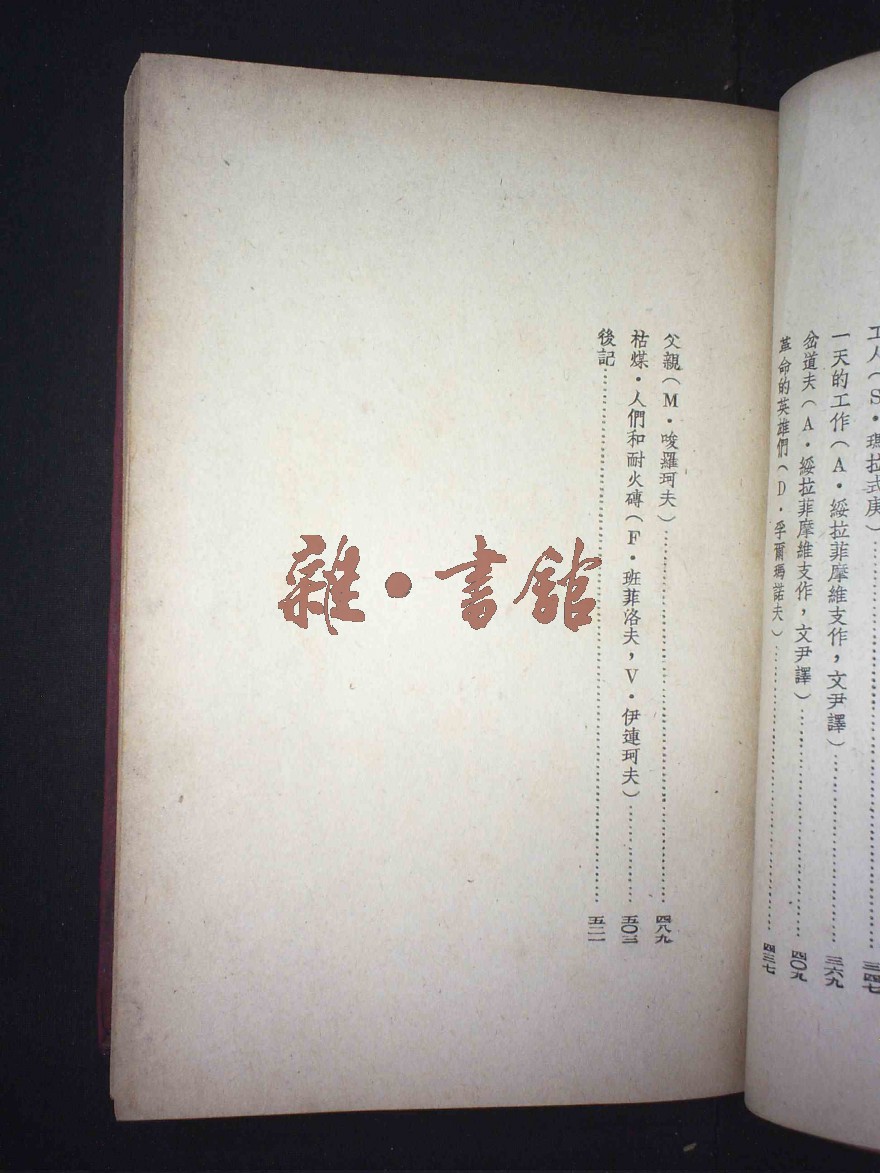 工人（S·瑪拉式庚）……三四七
一天的工作（A·綏拉菲摩維支作，文尹譯）……三六九
岔道夫（A·綏拉菲摩維支作，文尹譯）……四〇九
革命的英雄們（D·孚爾瑪諾夫）……四三七
父親（M·唆羅珂夫）……四八九
枯煤·人們和耐火磚（F·班菲洛夫，V·伊連珂夫）……五〇三
後記……五二一
雜·書館